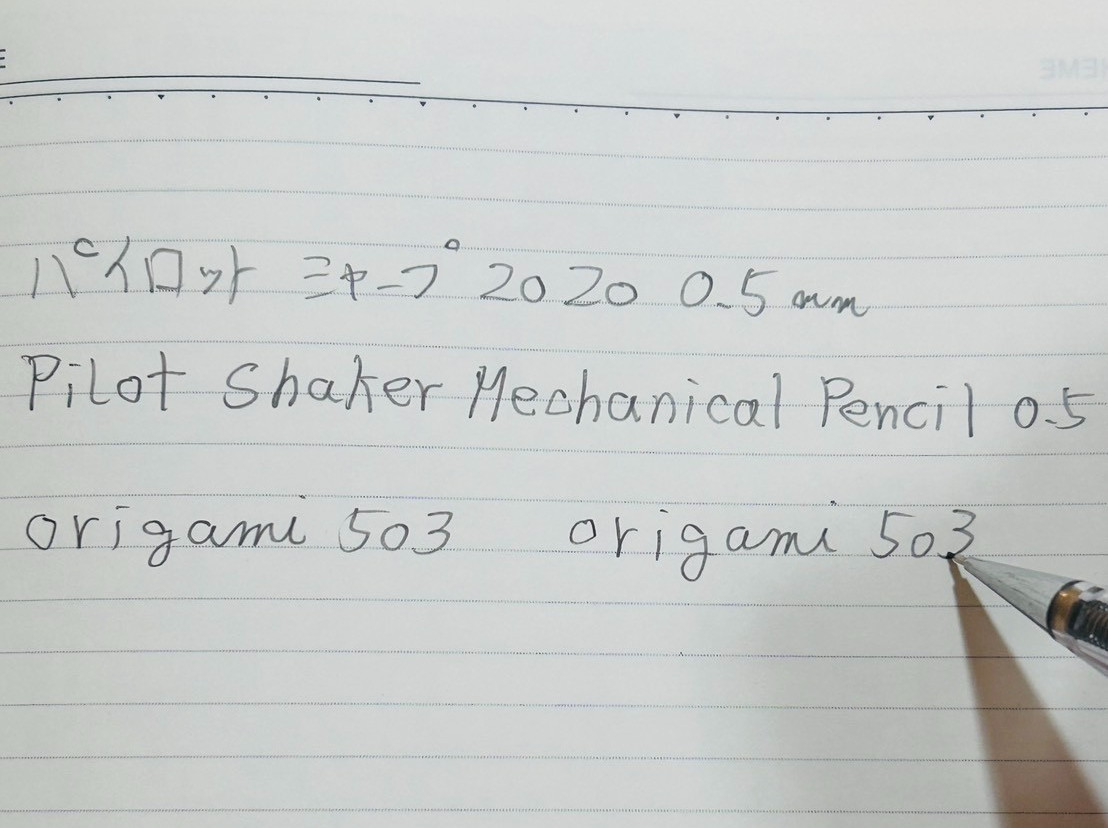 パイロット シャープ 2020 0.5 mm
Pilot Shaker Mechanical Pencil 0.5
origami 503 origami 503